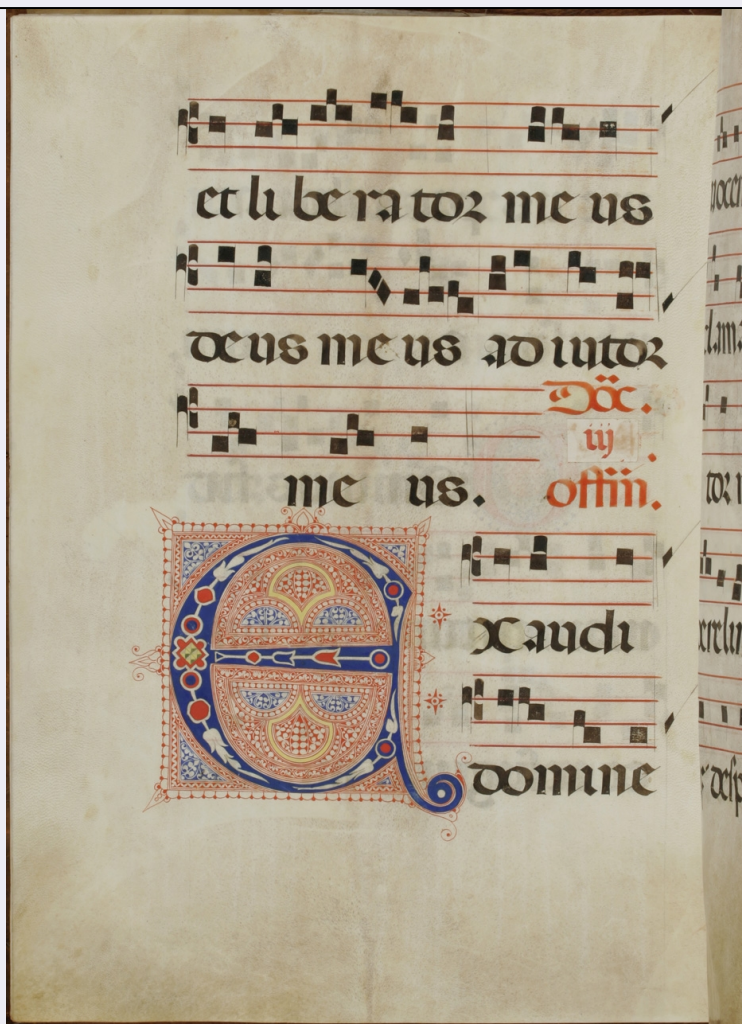 et li be ra tor me us
deus me us ad iutor
Dõc.
iij
me us. offm.
Exaudi
domine